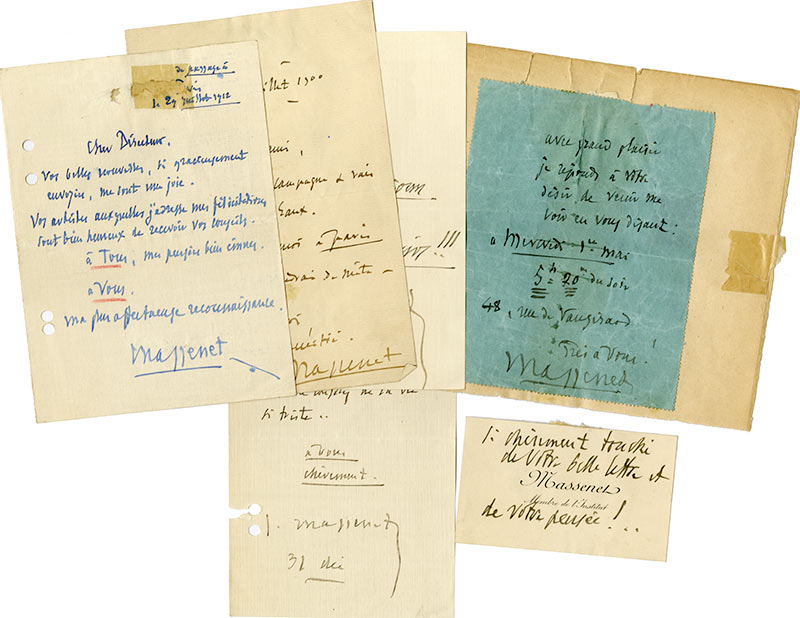 de passage à
Paris
le 27 juillet 1912
Cher Directeur.
Vos belles nouvelles, si gracieusement
envoyées, me sont une joie.
Vos artistes auxquelles j'adresse mes félicitations
sont bien heureux de recevoir vos conseils.
à Tous, ma pensée bien émue.
à Vous.
ma plus affectueuse reconnaissance.
Massenet
juillet 1900
campagne & vais
Eaux.
à Paris
de suite
Massenet
!!!
de sa vie
si triste..
à vous
chèrement.
J. Massenet
31 déc
avec grand plaisir
je réponds à votre
désir de venir me
voir en vous disant:
à Mercredi 1er Mai
5h 20m du soir
48, rue de Vaugirard
Très à Vous!
Massenet
si chèrement touché
de votre belle lettre et
Massenet
Membre de l'Institut
de votre pensée!...